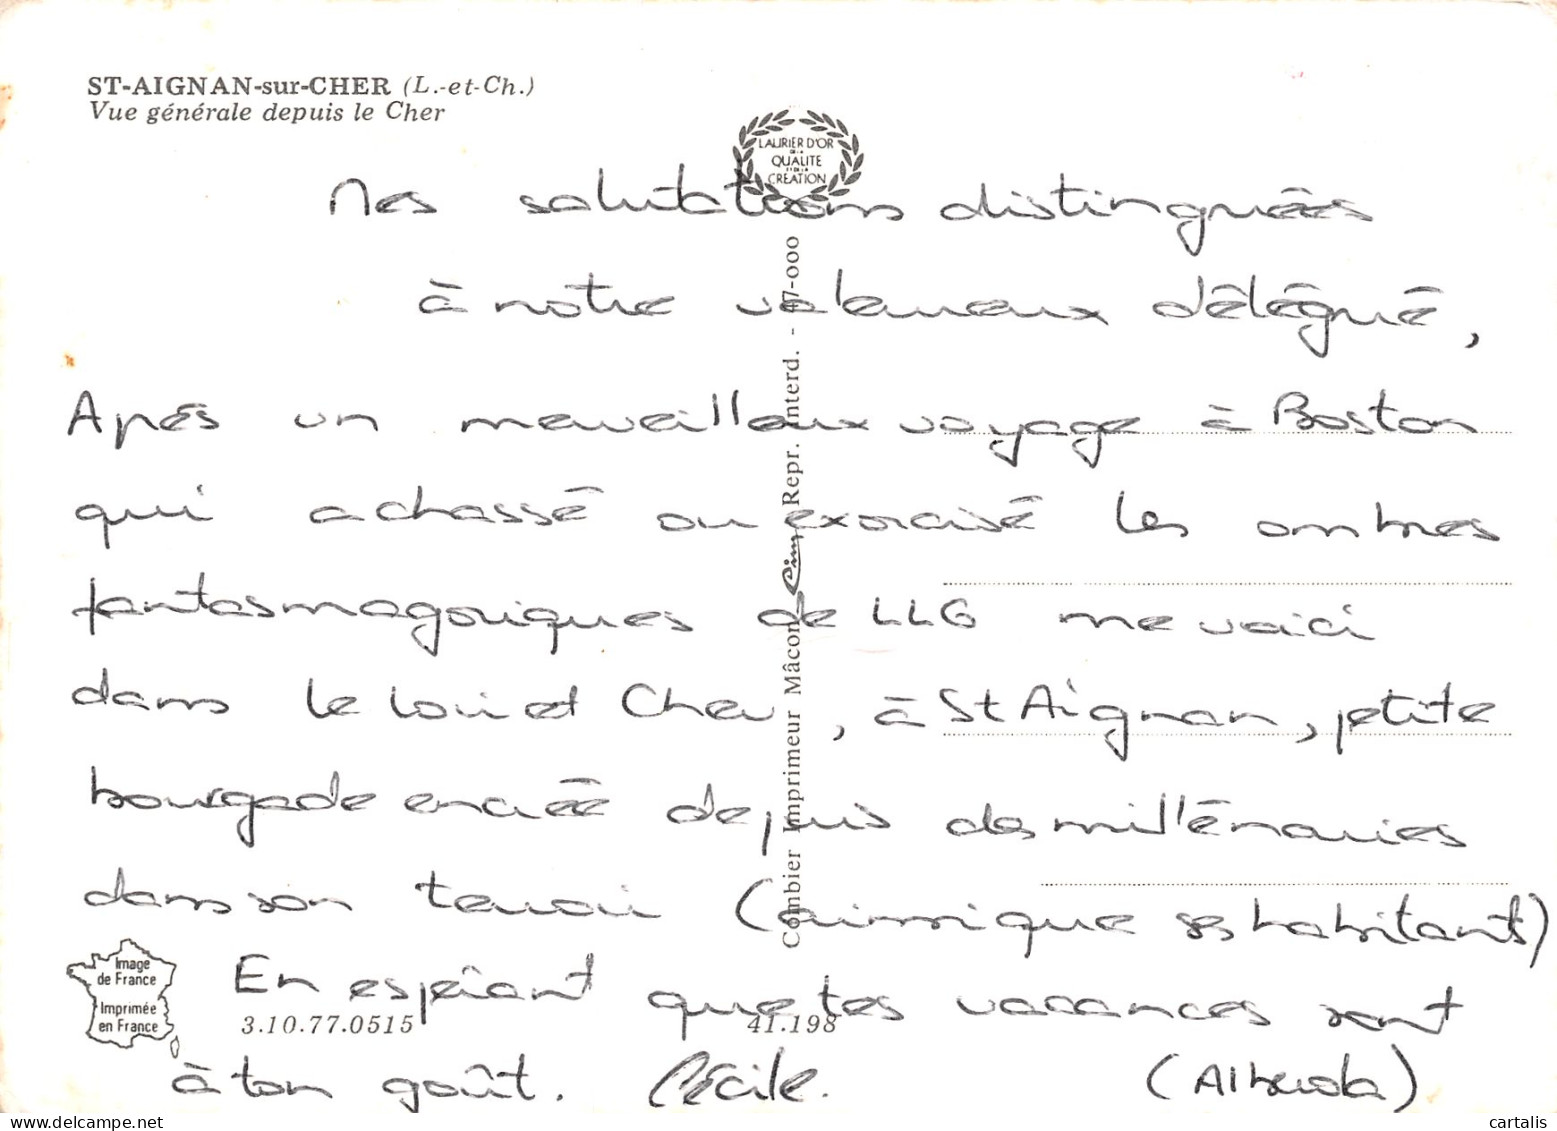 ST-AIGNAN-sur-CHER (L.-et-Ch.)
Vue générale depuis le Cher
LAURIER D'OR
DE LA
QUALITE
ET DE LA
CREATION
Mes salutations distinguées
à notre valeureux délégué,
Après un merveilleux voyage à Boston
qui a chassé ou exorcisé les ombres
fantasmagoriques de LLG me voici
dans le Loir et Cher, à St Aignan, petite
bourgade ancrée depuis des millénaires
dans son terroir (ainsi que ses habitants)
En espérant que tes vacances sont
à ton goût. Cécile.
Image
de France
Imprimée
en France
3.10.77.0515
41.198
Combier Imprimeur Mâcon Cim Repr. Interd. - 47-000
cartalis